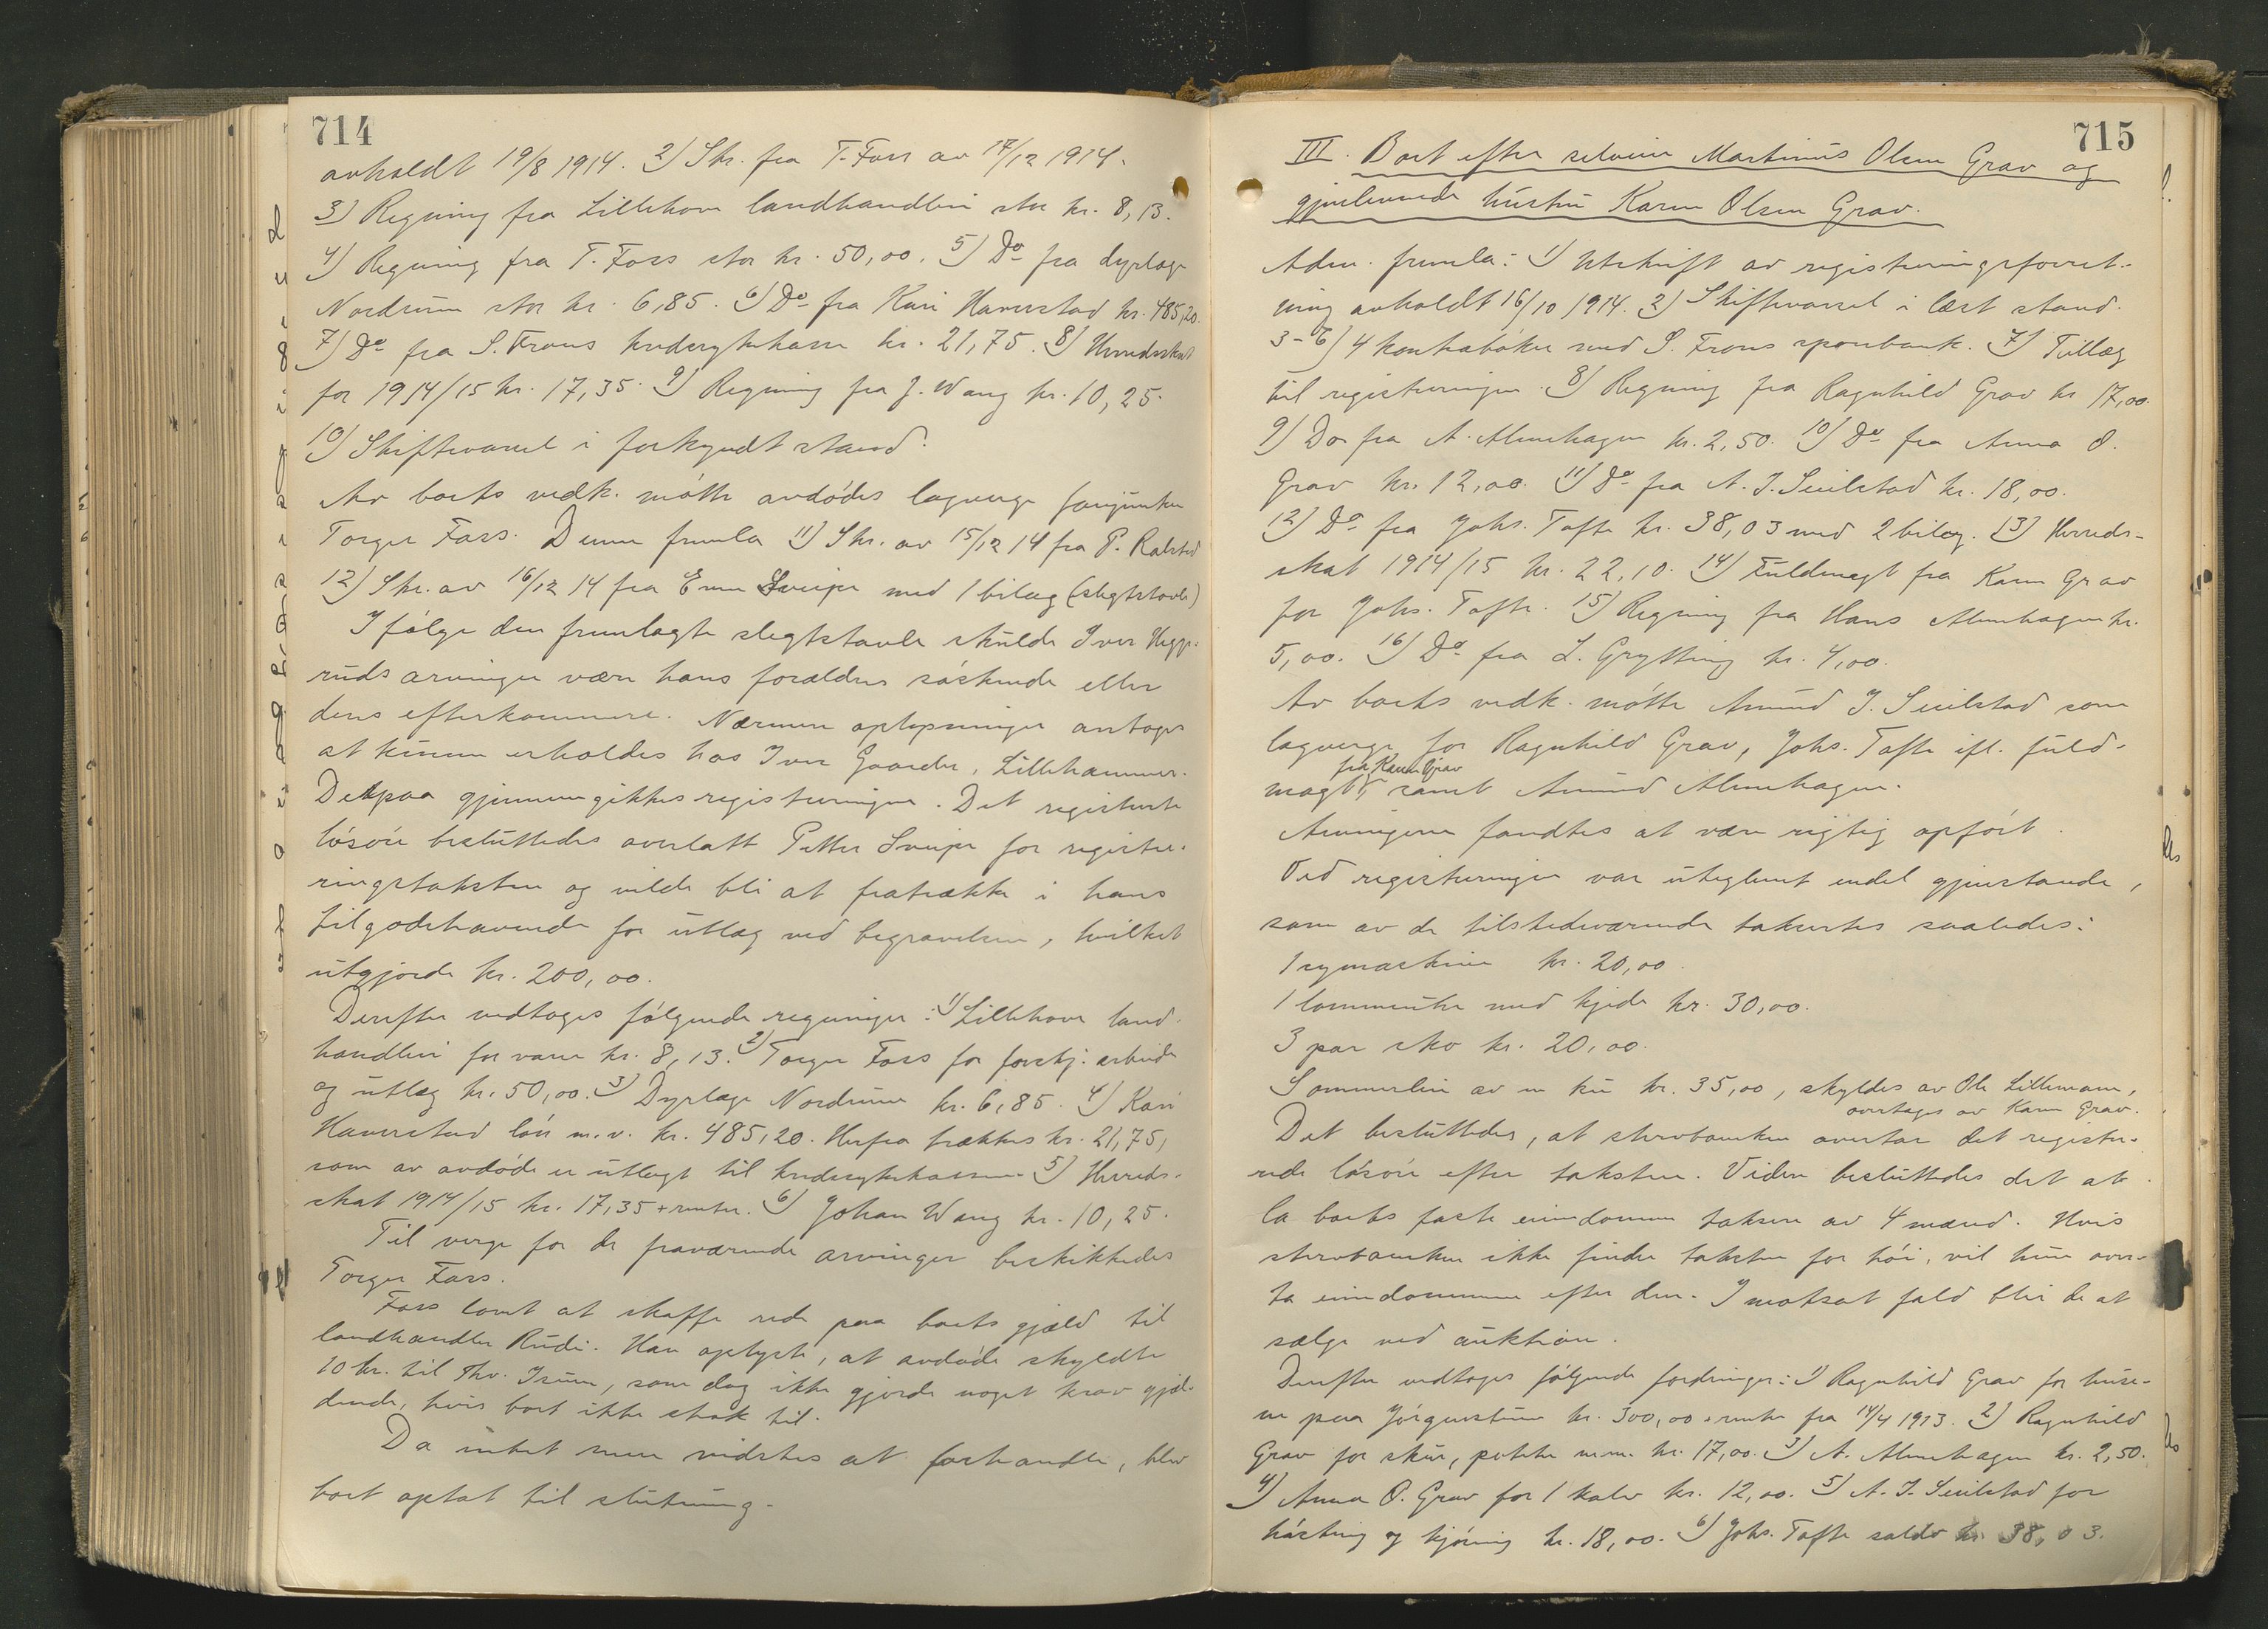 714
avholdt 19/8 1914. 2) Skr. fra T. Foss av 17/12 1914.
3) Regning fra Lillehove landhandleri stor kr. 8,13.
4) Regning fra T. Foss stor kr. 50,00. 5) Do fra dyrlæge
Nordrum stor kr. 6,85. 6) Do fra Kari Haverstad kr. 485,20.
7) Do fra S. Frons kredssykekasse kr. 21,75. 8) Herredsskat
for 1914/15 kr. 17,35. 9) Regning fra J. Wang kr. 10,25.
10) Skiftevarsel i forkyndt stand.
Av boets vedk. møtte avdødes lagverge fanejunker
Torger Foss. Denne fremla 11) Skr. av 15/12 14 fra P. Ralstad
12) Skr. av 16/12 14 fra Sveipe med 1 bilag (slegtstavle)
Ifølge den fremlagte slegtstavle skulde Iver Hegge-
ruds arvinger være hans forældres søskende eller
deres efterkommere. Nærmere oplysninger antages
at kunne erholdes hos Iver Gaarder, Lillehammer.
Derpaa gjennemgikkes registreringen. Det registrerte
løsøre besluttedes overlatt Petter Sveipe for registre-
ringstaksten og vilde bli at fratrække i hans
tilgodehavende for utlæg ved begravelsen, hvilket
utgjorde kr. 200,00.
Derefter vedtoges følgende regninger: 1) Lillehove land-
handleri for varer kr. 8,13. 2) Torger Foss for forskj. arbeide
og utlæg kr. 50,00. 3) Dyrlæge Nordrum kr. 6,85. 4) Kari
Haverstad løn m.v. kr. 485,20. Herfra trækkes kr. 21,75,
som av avdøde er utlagt til kredssykekassen 5) Herreds-
skat 1914/15 kr. 17,35 + renter. 6) Johan Wang kr. 10,25.
Til verge for de fraværende arvinger beskikkedes
Torger Foss.
Foss lovet at skaffe rede paa boets gjæld til
landhandler Rudi. Han oplyste, at avdøde skyldte
10 kr. til Thv. Isum, som dog ikke gjorde noget krav gjæl-
dende, hvis boet ikke strak til.
Da intet mere vidstes at forhandle, blev
boet optat til slutning.
715
III. Boet efter selveier Martinus Olsen Grav og
gjenlevende hustru Karen Olsen Grav.
Adm. fremla: 1) Utskrift av registreringsforret-
ning avholdt 16/10 1914. 2) Skiftevarsel i læst stand.
3-6) 4 kontrabøker med S. Frons sparebank. 7) Tillæg
til registreringen. 8) Regning fra Ragnhild Grav kr 17,00.
9) Do fra A. Almehagen kr. 2,50. 10) Do fra Anna O.
Grav kr. 12,00. 11) Do fra A. J. Seielstad kr. 18,00.
12) Do fra Johs. Tofte kr. 38,03 med 2 bilag. 13) Herreds-
skat 1914/15 kr. 22,10. 14) Fuldmagt fra Karen Grav
for Johs. Tofte. 15) Regning fra Hans Almehagen kr.
5,00. 16) Do fra L. Grytting kr. 4,00.
Av boets vedk. møtte Amund J. Seielstad som
lagverge for Ragnhild Grav, Johs. Tofte ifl. fuld-
magt fra Karen Grav, samt Amund Almehagen.
Arvingerne fandtes at være rigtig opført.
Ved registreringen var uteglemt endel gjenstande,
som av de tilstedeværende taksertes saaledes:
1 symaskine kr. 20,00.
1 lommeuhr med kjede kr. 30,00.
3 par sko kr. 20,00.
Sommerleie av en ku kr. 35,00, skyldes av Ole Lillemoen,
overtages av Karen Grav.
Det besluttedes, at stervboenken overtar det registre-
rede løsøre efter taksten. Videre besluttedes det at
la boets faste eiendommer taksere av 4 mænd. Hvis
stervboenken ikke finder taksten for høi, vil hun over-
ta eiendommene efter den. I motsat fald blir de at
sælge ved auktion.
Derefter vedtoges følgende fordringer: 1) Ragnhild Grav for huse-
ne paa Jørgenstuen kr. 300,00 + renter fra 14/4 1913. 2) Ragnhild
Grav for skur, poteter m.m. kr. 17,00. 3) A. Almehagen kr. 2,50.
4) Anna O. Grav for 1 kalv kr. 12,00. 5) A. J. Seielstad for
høsting og kjøring kr. 18,00. 6) Johs. Tofte saldo kr. 38,03.